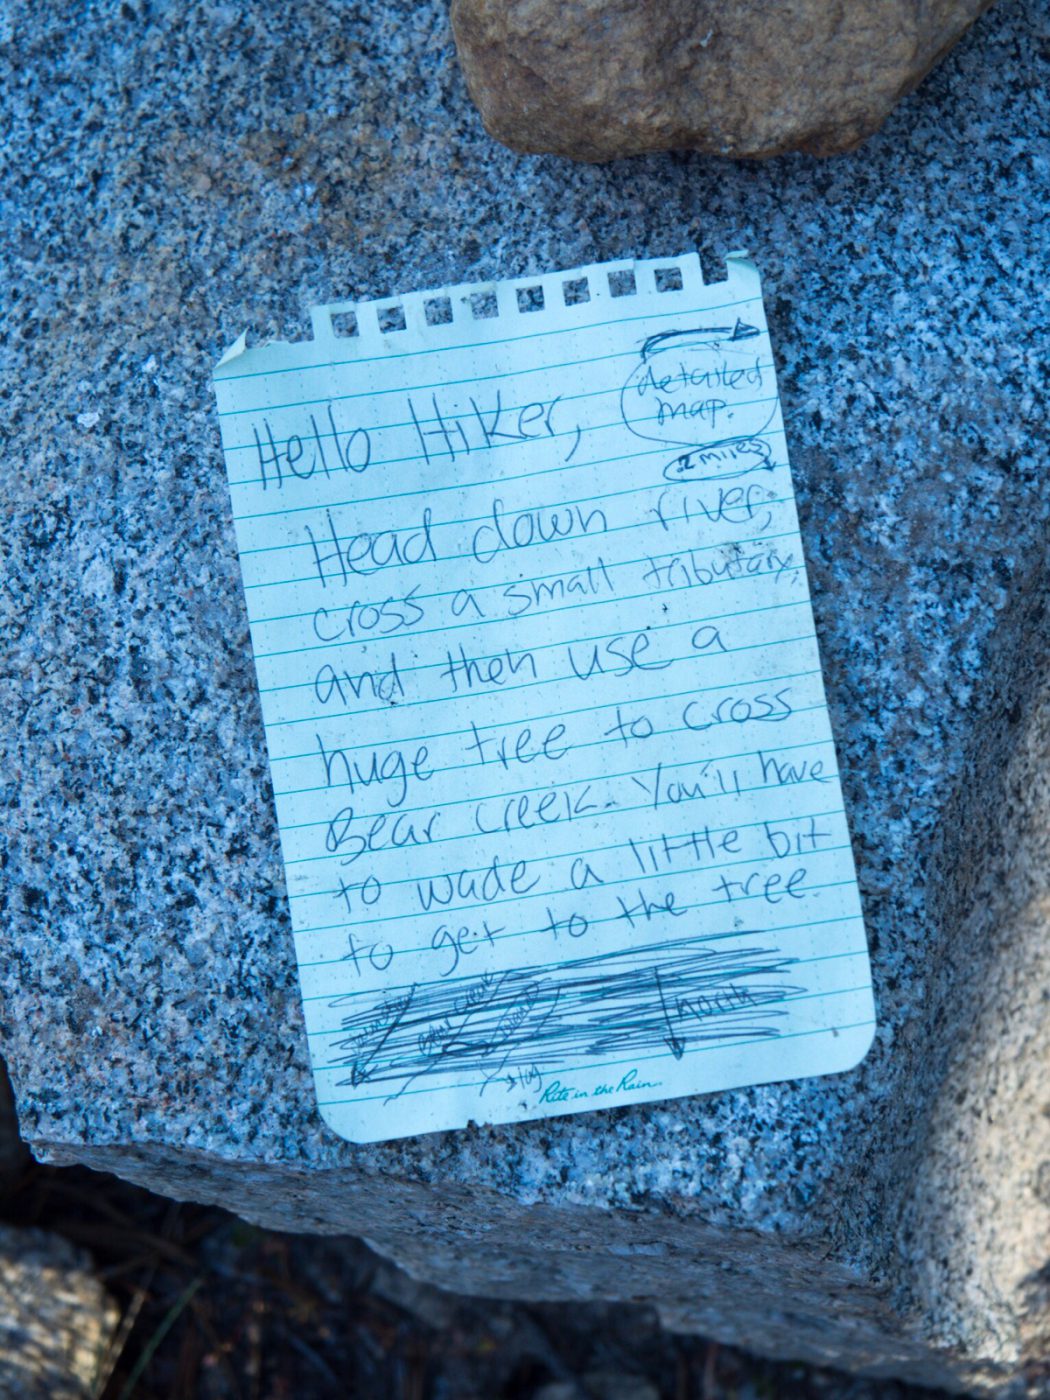 detailed
map.
2 miles
Hello Hiker,
Head down river,
cross a small tributary,
and then use a
huge tree to cross
Bear Creek. You'll have
to wade a little bit
to get to the tree.
North
log
Rite in the Rain